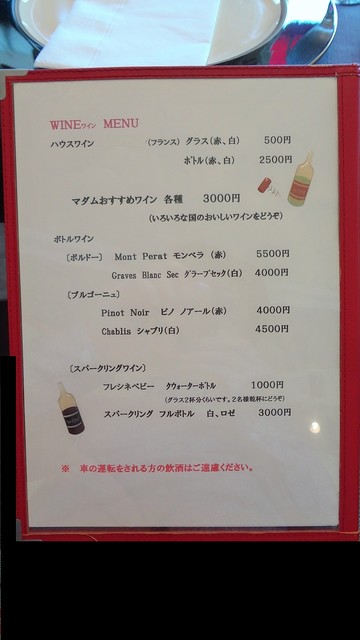 WINEワイン MENU
ハウスワイン (フランス) グラス(赤、白) 500円
ボトル(赤、白) 2500円
マダムおすすめワイン 各種 3000円
(いろいろな国のおいしいワインをどうぞ)
ボトルワイン
〔ボルドー〕 Mont Perat モンペラ (赤) 5500円
Graves Blanc Sec グラーブセック(白) 4000円
〔ブルゴーニュ〕
Pinot Noir ピノ ノアール(赤) 4000円
Chablis シャブリ(白) 4500円
〔スパークリングワイン〕
フレシネベビー クウォーターボトル 1000円
(グラス2杯分くらいです。2名様乾杯にどうぞ)
スパークリング フルボトル 白、ロゼ 3000円
※ 車の運転をされる方の飲酒はご遠慮ください。